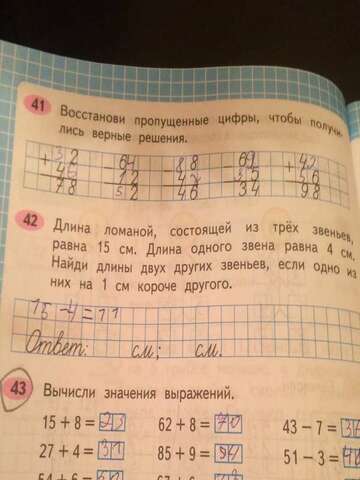 41 Восстанови пропущенные цифры, чтобы получи-
лись верные решения.
+32 -64 -88 -69 +42
46 12 42 35 56
78 52 46 34 98
42 Длина ломаной, состоящей из трёх звеньев,
равна 15 см. Длина одного звена равна 4 см.
Найди длины двух других звеньев, если одно из
них на 1 см короче другого.
15-4=11
Ответ: см; см.
43 Вычисли значения выражений.
15 + 8 = 23 62 + 8 = 70 43 - 7 = 36
27 + 4 = 31 85 + 9 = 94 51 - 3 = 48
54 + 6 =